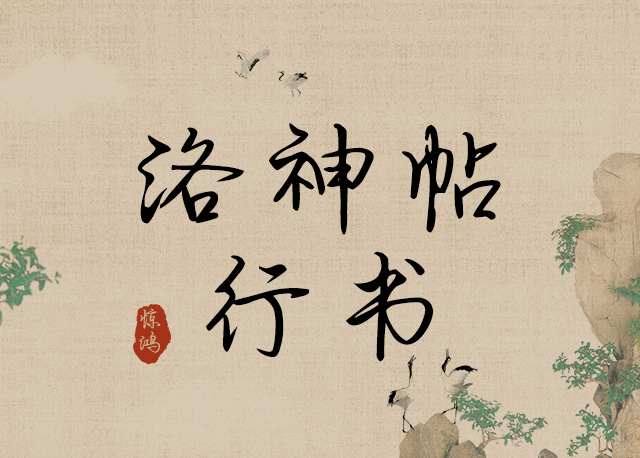 洛神帖
行书
惊鸿